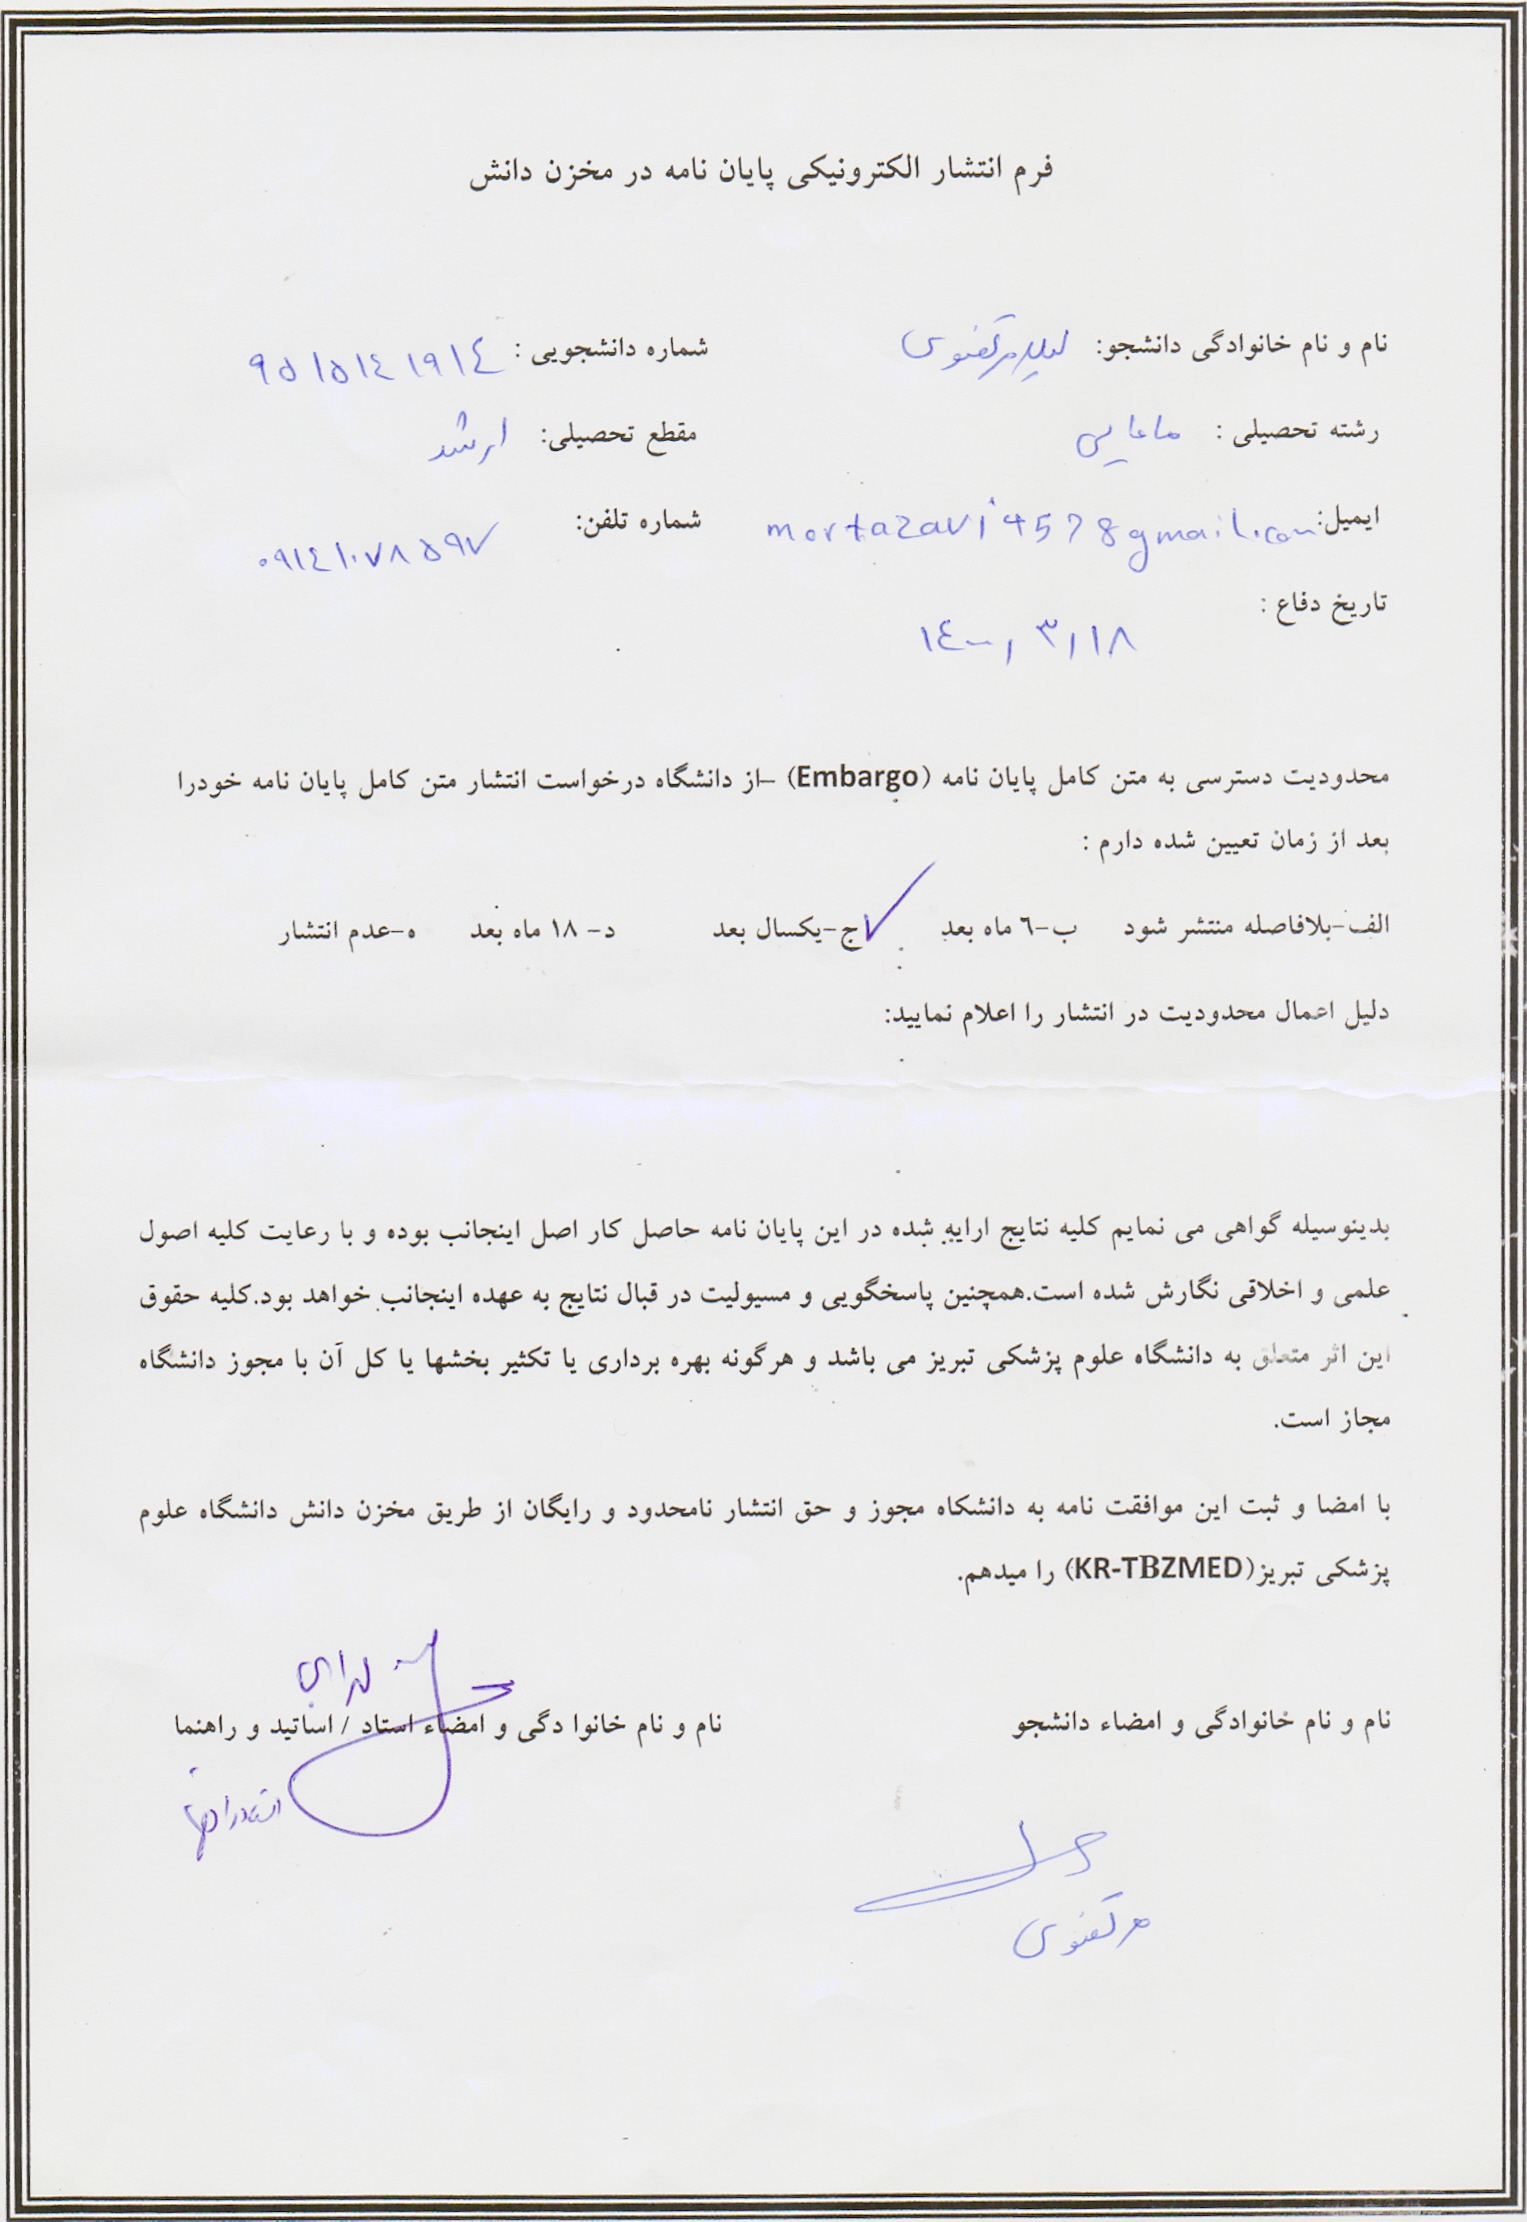 فرم انتشار الکترونیکی پایان نامه در مخزن دانش
نام و نام خانوادگی دانشجو: لیلا مرتضوی شماره دانشجویی : ٩٥١٥١٤١٩١٤
رشته تحصیلی : مامایی مقطع تحصیلی: ارشد
ایمیل: mortazavi4578gmail.com شماره تلفن: ٠٩١٤١٠٧٨٥٩٧
تاریخ دفاع : ١٤٠٠/٣/١٨
محدودیت دسترسی به متن کامل پایان نامه (Embargo) –از دانشگاه درخواست انتشار متن کامل پایان نامه خودرا
بعد از زمان تعیین شده دارم :
الف-بلافاصله منتشر شود ب-٦ ماه بعد ✓ج-یکسال بعد د- ١٨ ماه بعد ه-عدم انتشار
دلیل اعمال محدودیت در انتشار را اعلام نمایید:
بدینوسیله گواهی می نمایم کلیه نتایج ارایه شده در این پایان نامه حاصل کار اصل اینجانب بوده و با رعایت کلیه اصول
علمی و اخلاقی نگارش شده است.همچنین پاسخگویی و مسیولیت در قبال نتایج به عهده اینجانب خواهد بود.کلیه حقوق
این اثر متعلق به دانشگاه علوم پزشکی تبریز می باشد و هرگونه بهره برداری یا تکثیر بخشها یا کل آن با مجوز دانشگاه
مجاز است.
با امضا و ثبت این موافقت نامه به دانشکاه مجوز و حق انتشار نامحدود و رایگان از طریق مخزن دانش دانشگاه علوم
پزشکی تبریز(KR-TBZMED) را میدهم.
نام و نام خانوادگی و امضاء دانشجو نام و نام خانوا دگی و امضاء استاد / اساتید و راهنما
استاد راهنما
مرتضوی